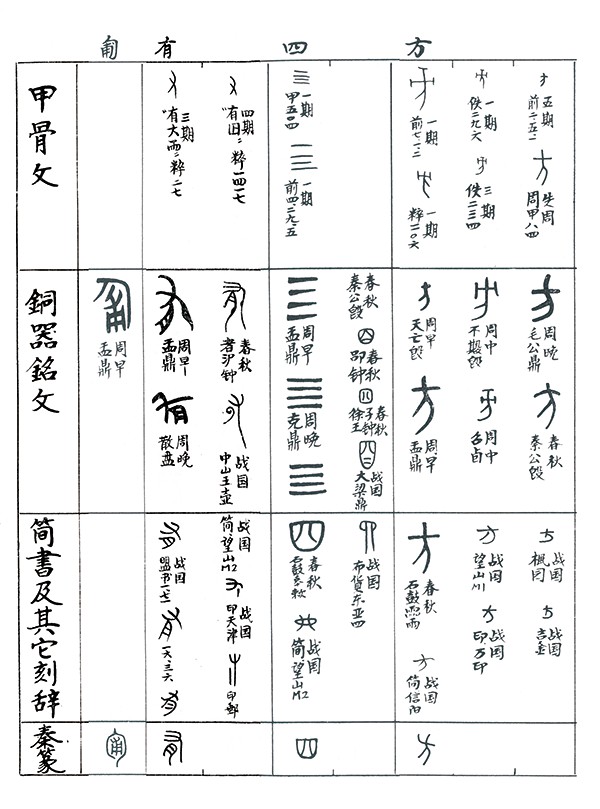 匍 有 四 方
甲骨文
三期
"有大雨"粹二七
四期
"有田"粹一四一七
一期
一期
前四·二九·五
一期
一期
一期
佚二九六
三期
佚二三四
五期
先周
周甲八四
銅器銘文
周早
盂鼎
周早
盂鼎
周晚
散盘
春秋
者沪钟
战国
中山王壶
周早
盂鼎
周晚
克鼎
春秋
秦公𣪘
春秋
郘钟
春秋
徐王子钟
战国
大梁鼎
周早
天亡𣪘
周早
盂鼎
周中
不𡢁𣪘
周中
周晚
毛公鼎
春秋
秦公𣪘
简書及其它刻辞
战国
盟书一·七
一八·三·六
战国
简望山M2
战国
印天津
春秋
战国
简望山M2
战国
布货东亚四
春秋
战国
简信阳
战国
战国
战国
战国
秦篆